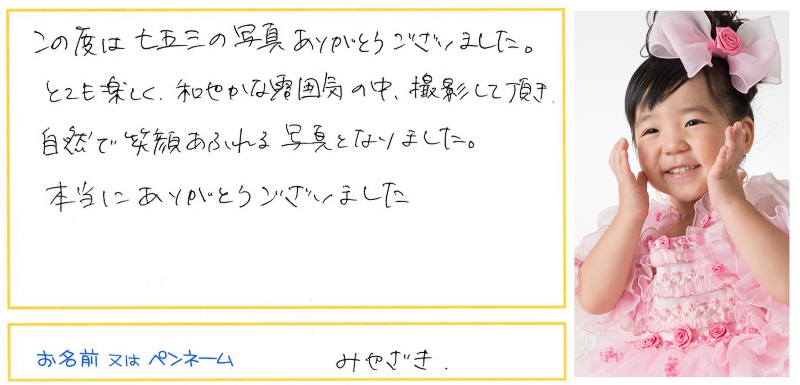 この度は七五三の写真ありがとうございました。
とても楽しく、和やかな雰囲気の中、撮影して頂き、
自然で笑顔あふれる写真となりました。
本当にありがとうございました
お名前 又は ペンネーム みやざき.